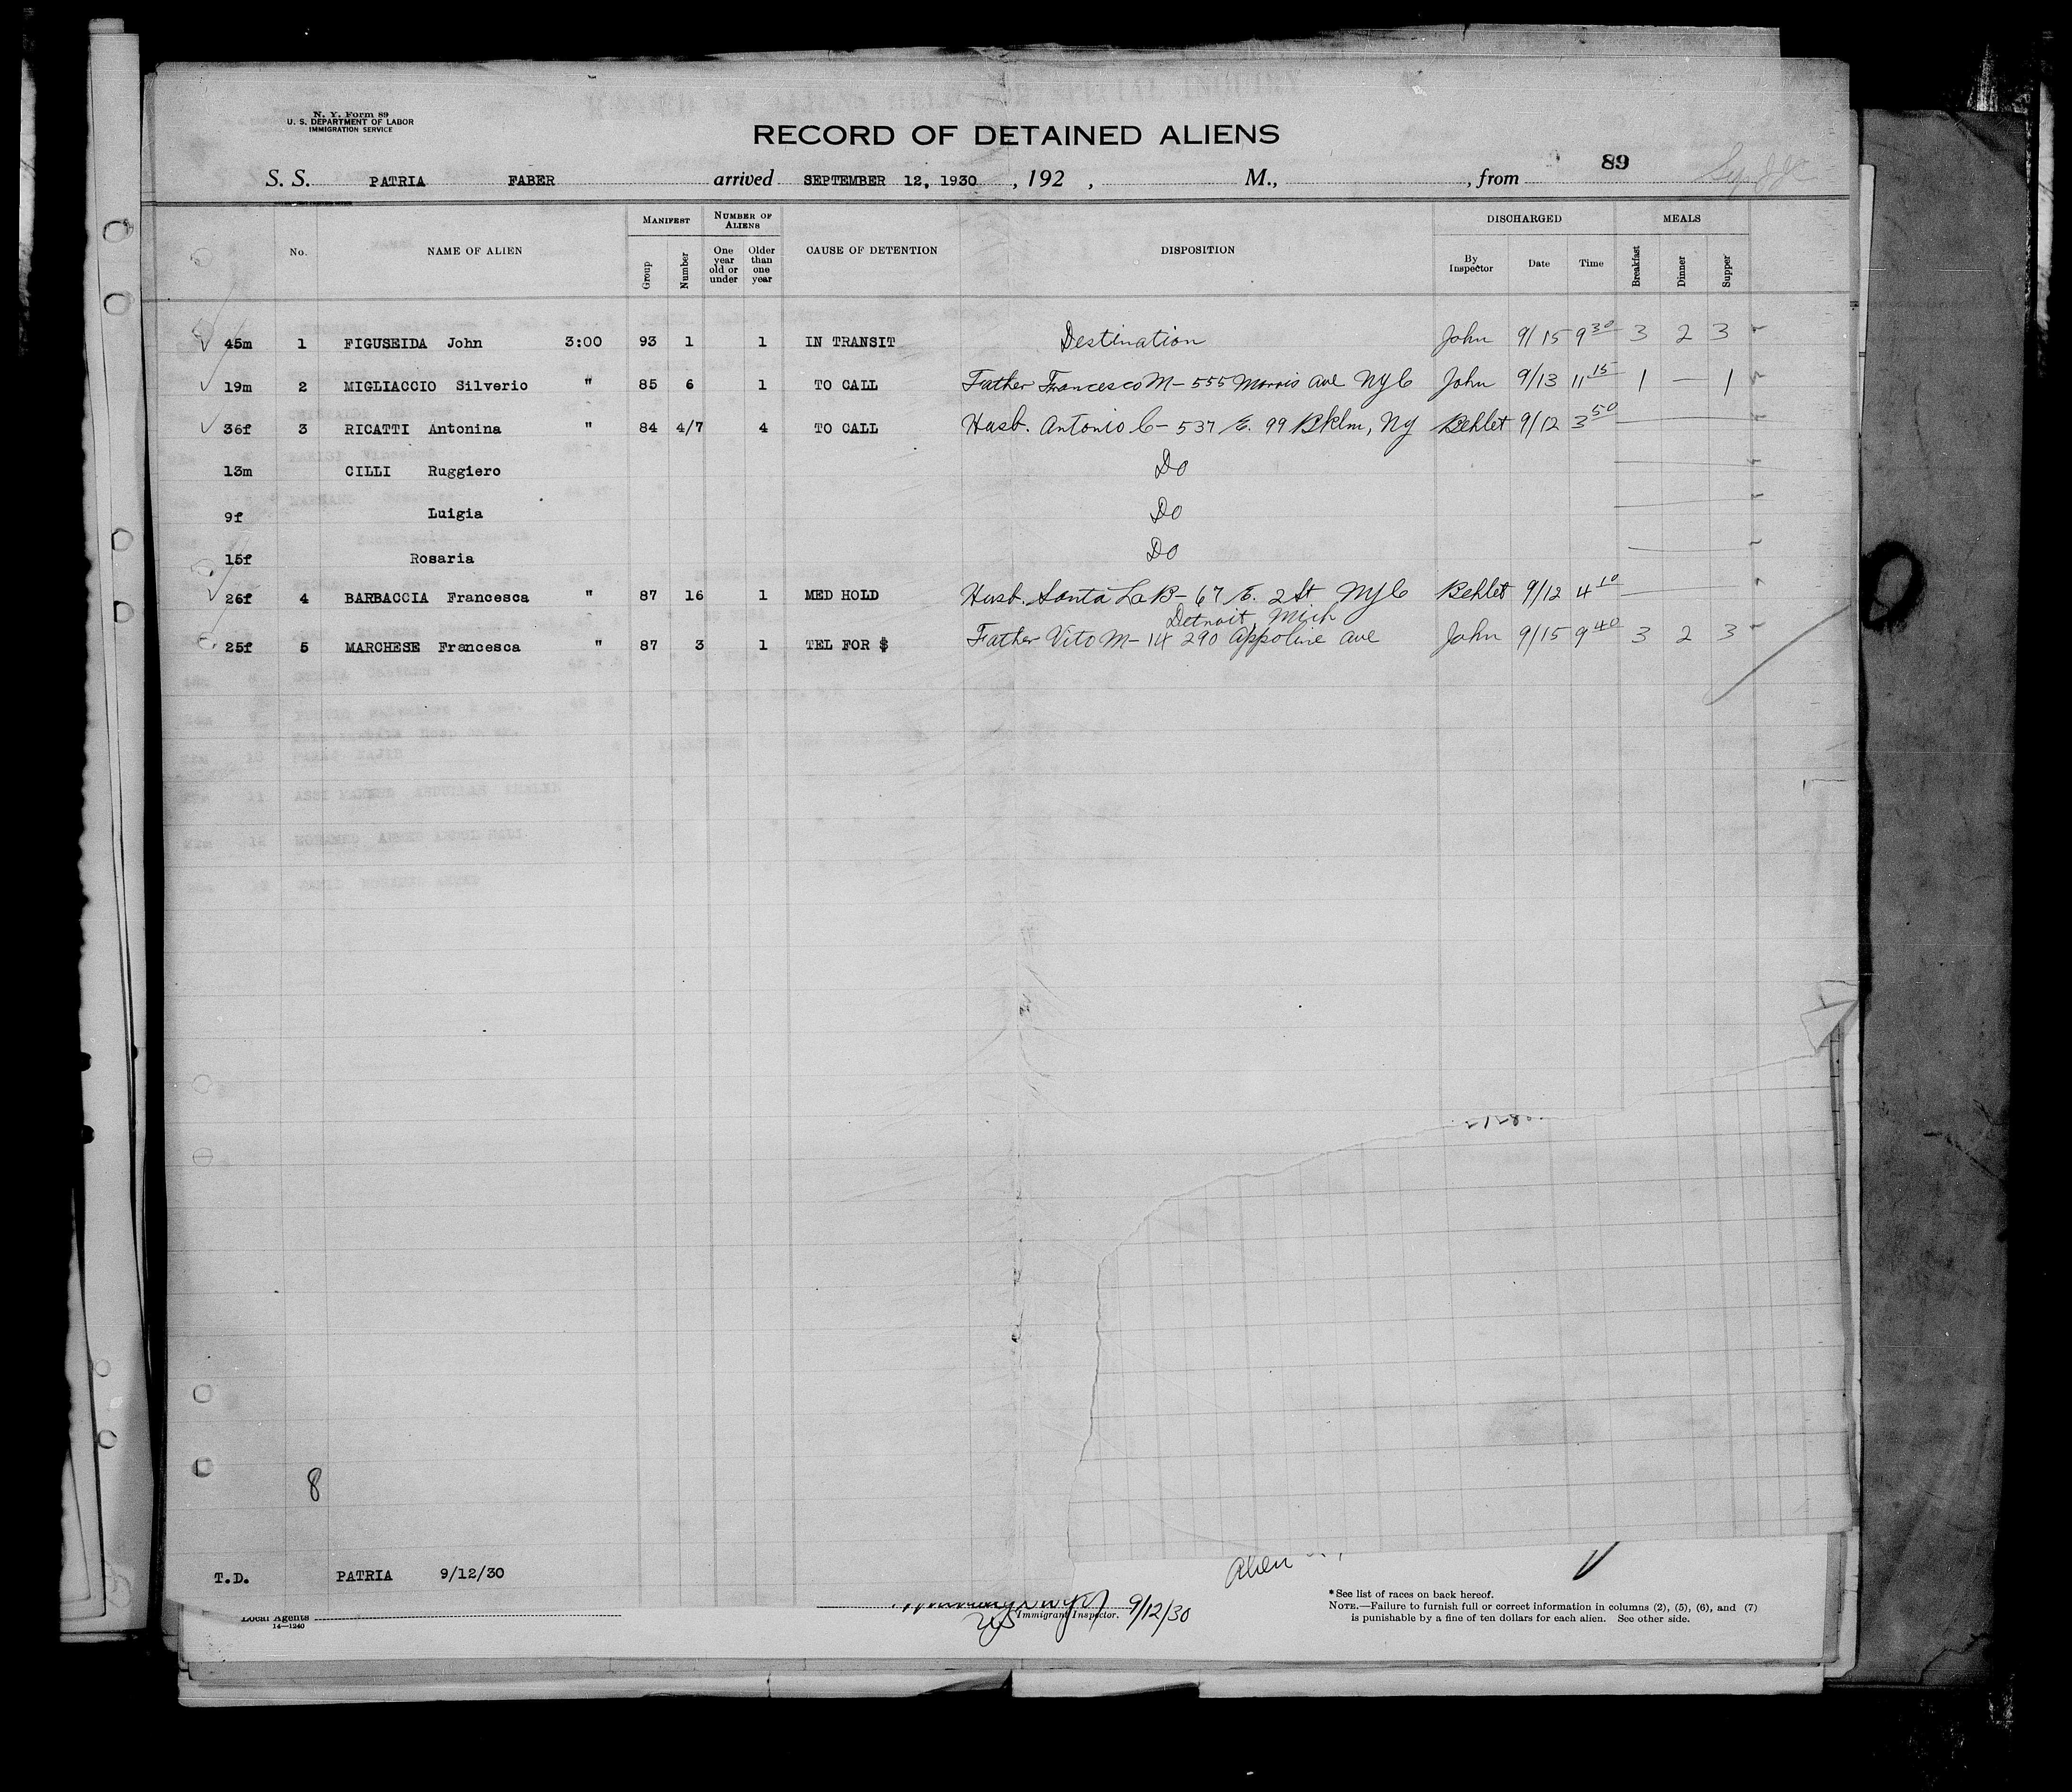 N. Y. Form 89
U. S. DEPARTMENT OF LABOR
IMMIGRATION SERVICE
RECORD OF DETAINED ALIENS
89
S. S. PATRIA FABER arrived SEPTEMBER 12, 1930 , 192 , M., , from
No. NAME OF ALIEN MANIFEST Group Number NUMBER OF ALIENS One year old or under Older than one year CAUSE OF DETENTION DISPOSITION DISCHARGED By Inspector Date Time MEALS Breakfast Dinner Supper
45m 1 FIGUSEIDA John 3:00 93 1 1 IN TRANSIT Destination John 9/15 9 30 3 2 3
19m 2 MIGLIACCIO Silverio " 85 6 1 TO CALL Father Francesco M - 555 Morris Ave NYC John 9/13 11 15 1 — 1
36f 3 RICATTI Antonina " 84 4/7 4 TO CALL Husb. Antonio C - 537 E. 99 Bklm, NY Behlet 9/12 3 50
13m CILLI Ruggiero Do
9f Luigia Do
15f Rosaria Do
26f 4 BARBACCIA Francesca " 87 16 1 MED HOLD Husb. Santa La B - 67 E. 2 St NYC Behlet 9/12 4 10
Detroit, Mich
25f 5 MARCHESE Francesca " 87 3 1 TEL FOR $ Father Vito M - 14290 Appoline Ave John 9/15 9 40 3 2 3
8
T.D. PATRIA 9/12/30
Alien
Local Agents
14—1240
Immigrant Inspector. 9/12/30
*See list of races on back hereof.
NOTE.—Failure to furnish full or correct information in columns (2), (5), (6), and (7)
is punishable by a fine of ten dollars for each alien. See other side.